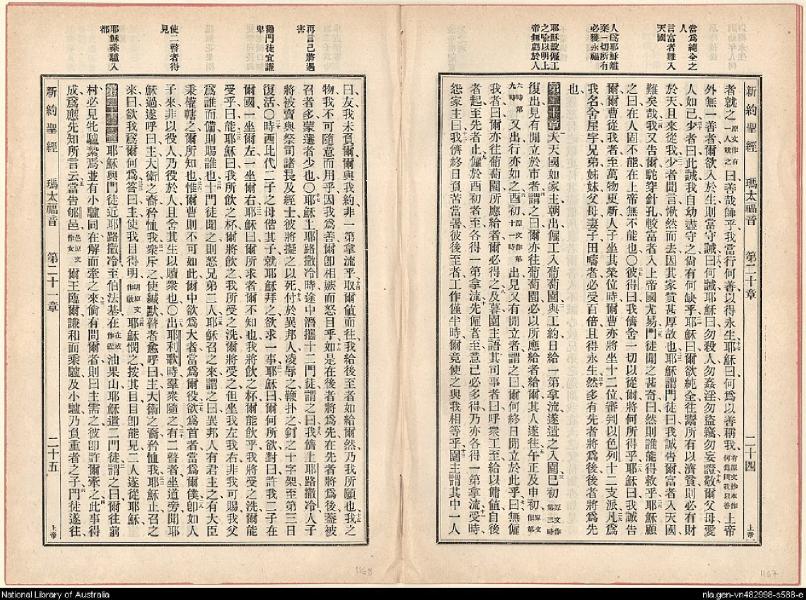 新約聖經　瑪太福音　第二十章　二十四
當爲純全之人
言富者難入天國
人爲耶穌離棄一切所有必獲永福
耶穌設僱工之喻以明上帝無虧於人
外無一善者爾欲入於生則當守誡曰何誡耶穌曰勿殺人勿姦淫勿盜竊勿妄證敬爾父母愛
人如己少者曰此誡我自幼盡守之尚有何缺乎耶穌曰爾欲純全往鬻所有以濟貧則必有財
於天且來從我少者聞言愀然而去因其家貲甚厚故也耶穌謂門徒曰我誠告爾富者入天國
難矣哉我又告爾駝穿針孔較富者入上帝國尤易門徒聞之甚奇曰然則誰能得救乎耶穌顧
之曰在人固不能在上帝無不能也〇彼得曰我儕舍一切以從爾將何所得乎耶穌曰我誠告
爾爾曹從我者至萬物更新人子坐其榮位時爾曹亦將坐十二位審判以色列十二支派凡爲
我名舍屋宇兄弟姊妹父母妻子田疇者必受百倍且得永生然多有先者將爲後後者將爲先
也
第二十章　天國如家主朝出僱工入葡萄園與工約日給一第拿流遂遣之入園巳初
復出見有閒立於市者謂之曰爾亦往葡萄園必以所應給者給爾其人遂往午正及申初
又出行亦如之酉初　出見又有閒立者謂之曰爾何終日閒立於此乎曰無僱
我者曰爾亦往葡萄園所應給者爾必得之及暮園主語其司事者曰呼衆工至給以傭值自後
者起至先者止僱於酉初者至各得一第拿流先僱者至意己必多得乃亦各得一第拿流受時
怨家主曰我儕終日負苦當暑彼後至者工作僅半時爾竟使之與我相等乎園主謂其中一人
上帝
再言己將遇害
勸門徒宜謙卑
使二瞽者得見
耶穌乘驢入都
曰友我未負爾爾與我約非一第拿流乎取爾值而往我給後至者如給爾然乃我所願也我之
物我不可隨意而用乎因我爲善爾卽相嫉而怒目乎如是在後者將爲先在先者將爲後蓋被
召者多蒙選者少也〇耶穌上耶路撒冷時途中潛攜十二門徒謂之曰我儕上耶路撒冷人子
將被賣與祭司諸長及經士彼將擬之以死付於異邦人凌辱之鞭扑之釘之十字架至第三日
復活〇時西比代二子之母偕其子就耶穌拜之欲求一事耶穌曰爾何所欲對曰許我二子在
爾國一坐爾左一坐爾右耶穌曰爾所求者爾不知也我將飲之杯爾能飲乎我將受之洗爾能
受乎曰能耶穌曰我所飲之杯爾將飲之我所受之洗爾將受之但坐我左我右非我可賜我父
爲誰而備則賜誰也十門徒聞之則怒兄弟二人耶穌召之來謂之曰異邦人有君主之有大臣
秉權轄之爾所知也惟爾曹則不可如此爾中欲爲大者當爲爾役欲爲首者當爲爾僕卽如人
子來非以役人乃役於人且舍其生以贖衆也〇出耶利歌時羣衆隨之有二瞽者坐道旁聞耶
穌過遂呼曰主大衛之裔矜恤我衆斥之使緘默瞽者愈呼曰主大衛之裔矜恤我耶穌止召之
來曰欲我爲爾何爲答曰主使我目得明　耶穌憫之按其目目卽能見二人遂從耶穌
第二十一章　耶穌與門徒近耶路撒冷至伯法基在　油果山耶穌遣二門徒謂之曰爾往前
村必見牝驢縶焉並有小驢同在解而牽之來倘有問爾者則曰主需之彼卽許爾牽之此事得
成爲應先知所言云當告郇邑　爾王臨爾謙和而乘驢及小驢乃負重者之子門徒遂往
新約聖經　瑪太福音　第二十一章　二十五
上帝
1168
1167
National Library of Australia
nla.gen-vn482998-s588-e